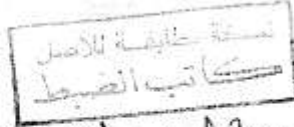 نسخة مطابقة للأصل
كاتب الضبط